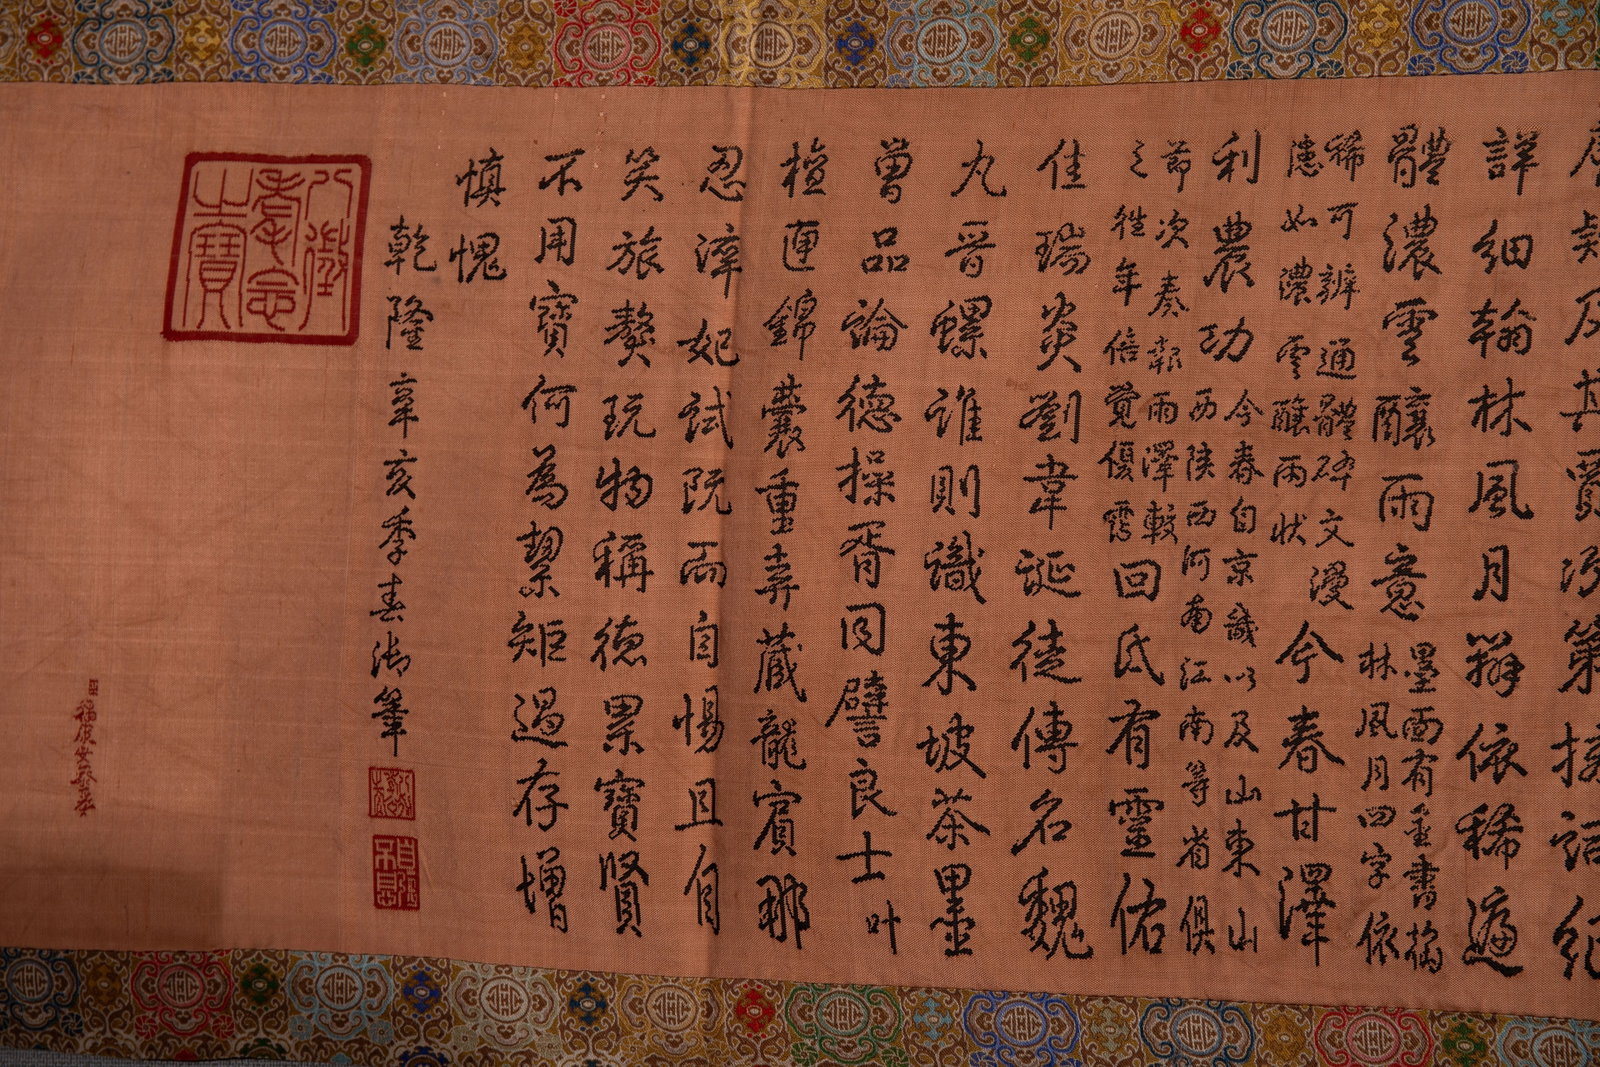 詳細翰林風月辨依稀遍
體濃雲釀雨意
墨面有金書摛
林風月四字依
稀可辨通體碎文漫
漶如濃雲釀雨狀
今春甘澤
利農功
今春自京畿以及山東山
西陝西河南江南等省俱
節次奏報雨澤較
之往年倍覺優霑
回氐有靈佑
佳瑞炎劉韋誕徒傳名魏
丸晉螺誰則識東坡茶墨
曾品論德操胥同譬良士叶
檀匣錦囊重弆藏龍賓那
忍滓妃試既而自惕且自
笑旅獒玩物稱德累寶賢
不用寶何為絜矩過存增
慎愧
乾隆辛亥季春御筆
八徵耄念之寶
自強不息
臣福康安恭摹